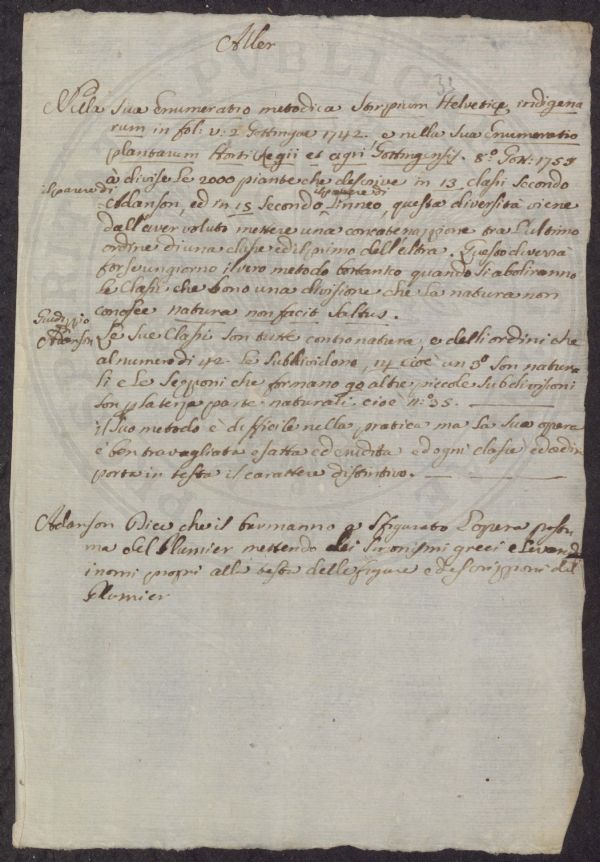 Aller
Nella sua Enumeratio metodica Stirpium Helvetiçe indigena
rum in fol: v. 2 Gottingue 1742. e nella sua Enumeratio
plantarum Horti Regii et agri Gottingensis. 8.º Gott: 1753
à divise le 2000 piante che descrive in 13 clasi secondo
il parere di
Adanson, ed in 15 secondo il parere di Linneo, questa diversità viene
dall'aver voluto mettere una concatenazzione tra l'ultimo
ordine di una clase ed il primo dell'altra. Questo diverrà
forse un giorno il vero metodo bottanico quando si aboliranno
le Clasi, che sono una divisione che la natura non
conosce natura non facit saltus.
Giudizzio
Adanson
Le sue Clasi son tutte contro natura, e delli ordini che
al numero di 42. le subdividono, 14 cioè un 3º son natura
li e le sezzioni che formano 90 altre piccole subdivisioni
son p la terza parte naturali. cioè nº 35.
il suo metodo è difficile nella pratica ma la sua opera
è ben travagliata esatta ed erudita ed ogni clase ed ordin
porta in testa il carattere distintivo.
Adanson Dice che il burmanno à sfigurato l'opera postu
ma del Plumier mettendo dei sinonismi greci e levando
i nomi propri alla testa delle figure e descrizzioni del
Plumier